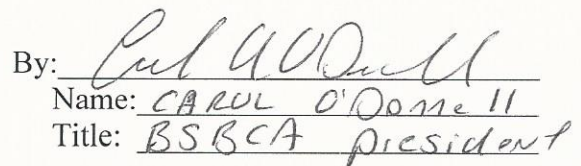 By: Carol A O'Donnell
Name: CAROL O'Donnell
Title: BSBCA president